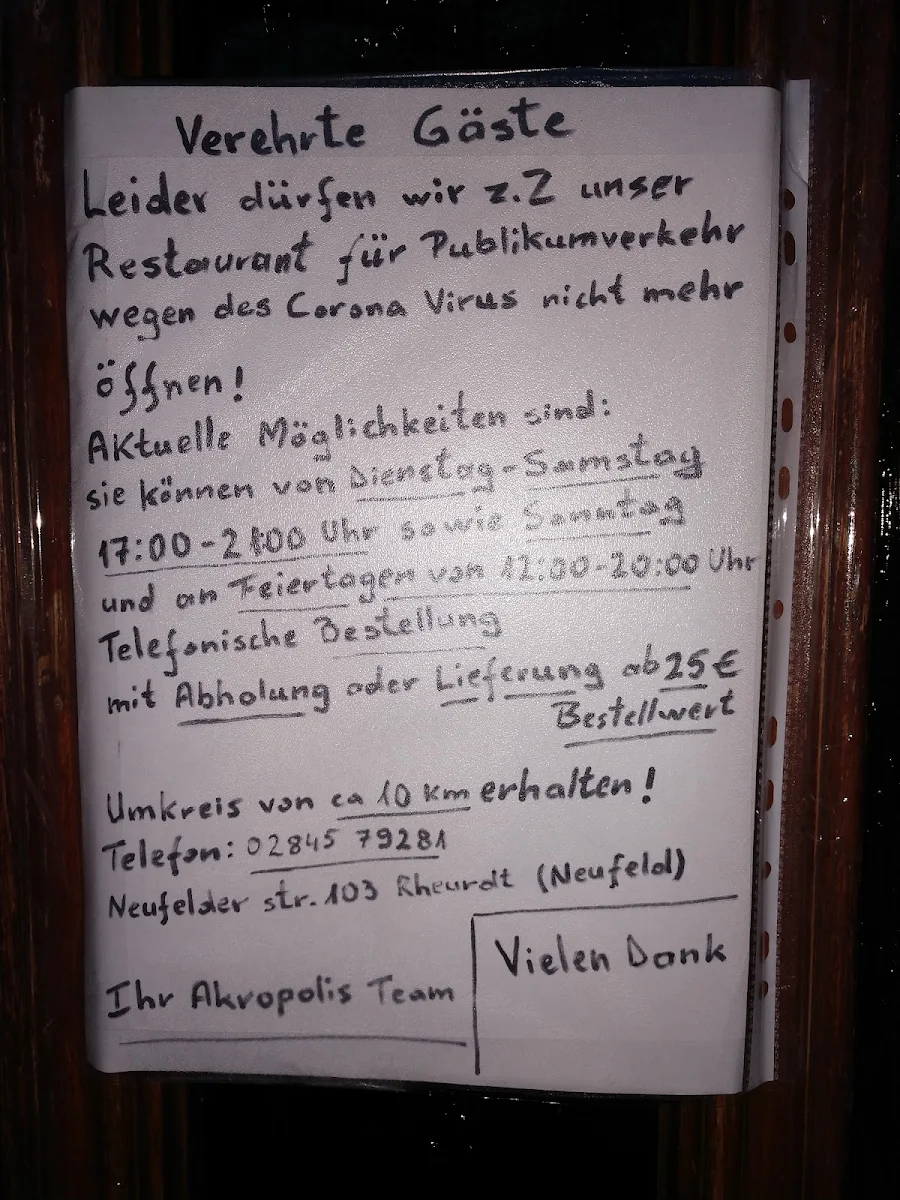 Verehrte Gäste
Leider dürfen wir z.Z unser
Restaurant für Publikumverkehr
wegen des Corona Virus nicht mehr
öffnen!
Aktuelle Möglichkeiten sind:
sie können von Dienstag-Samstag
17:00-21:00 Uhr sowie Sonntag
und an Feiertagen von 12:00-20:00 Uhr
Telefonische Bestellung
mit Abholung oder Lieferung ab 25€
Bestellwert
Umkreis von ca 10 km erhalten!
Telefon: 02845 79281
Neufelder str. 103 Rheurdt (Neufeld)
Vielen Dank
Ihr Akropolis Team